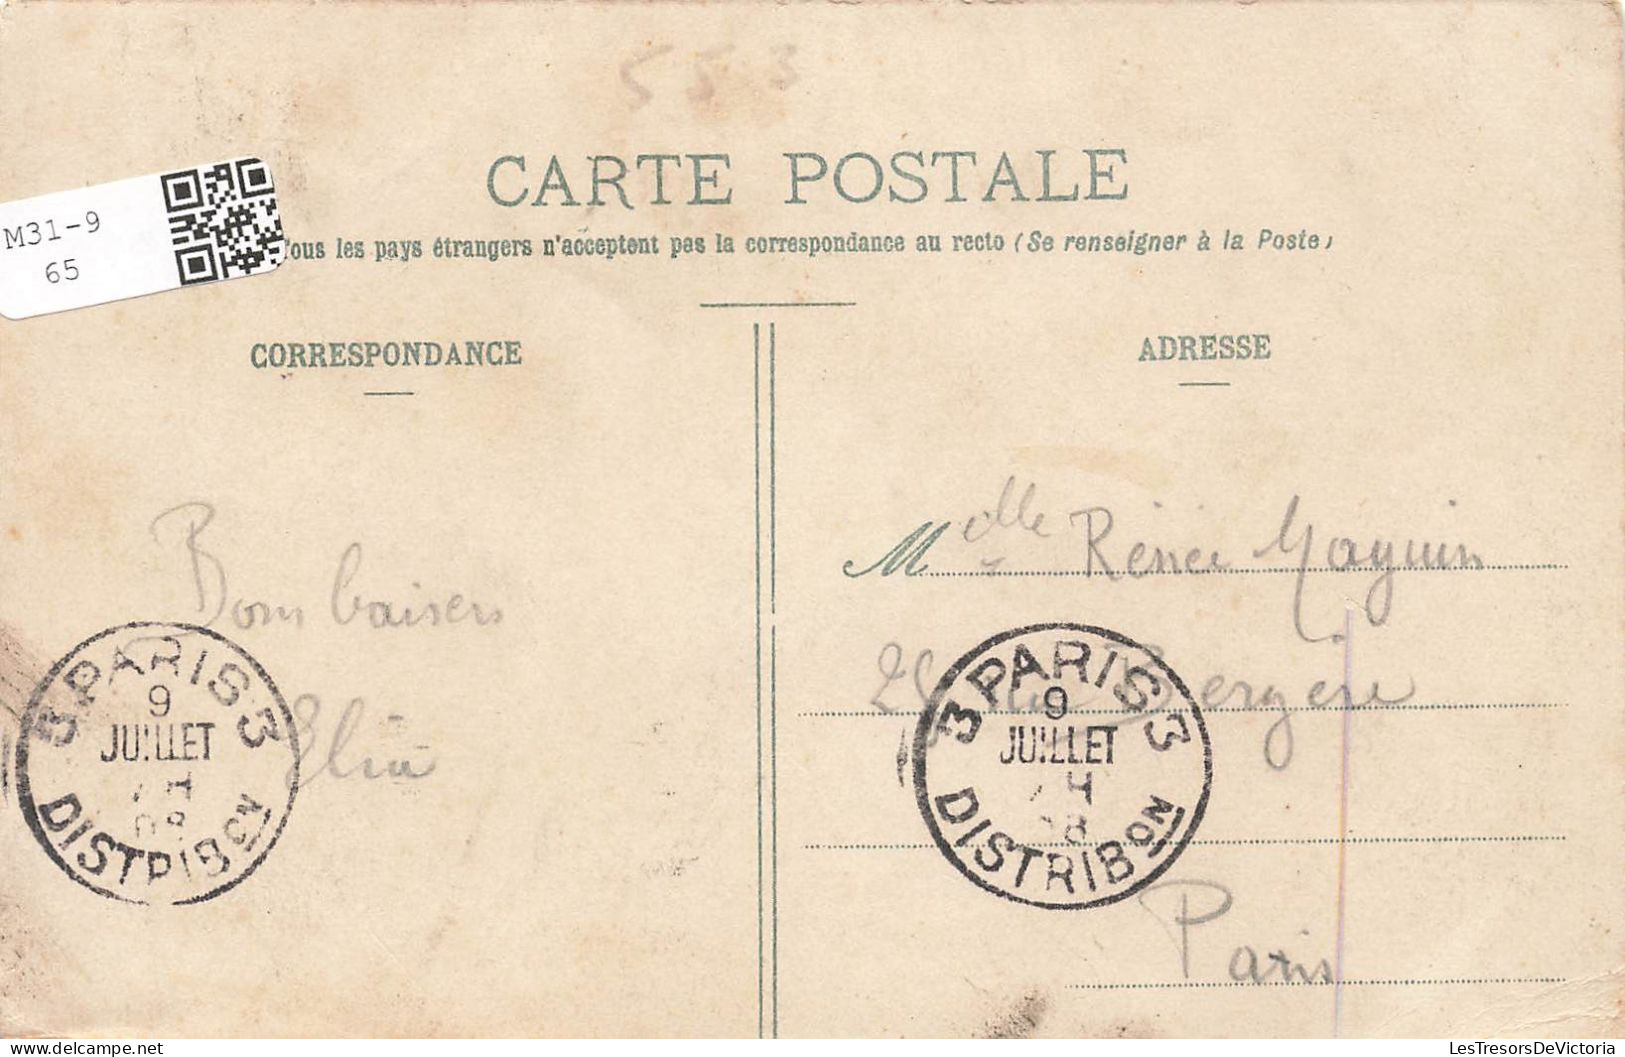 553
CARTE POSTALE
M31-9
65
Tous les pays étrangers n'acceptent pas la correspondance au recto (Se renseigner à la Poste)
CORRESPONDANCE
ADRESSE
Melle Rénée Maguin
Bons baisers
Bergère
3 PARIS 3
9
JUILLET
08
DISTRIBON
3 PARIS 3
9
JUILLET
H
08
DISTRIBON
Paris
www.delcampe.net
LesTresorsDeVictoria